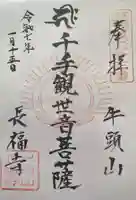 奉拝
牛頭山
千手観世音菩薩
令和七年
一月十三日
長福寺